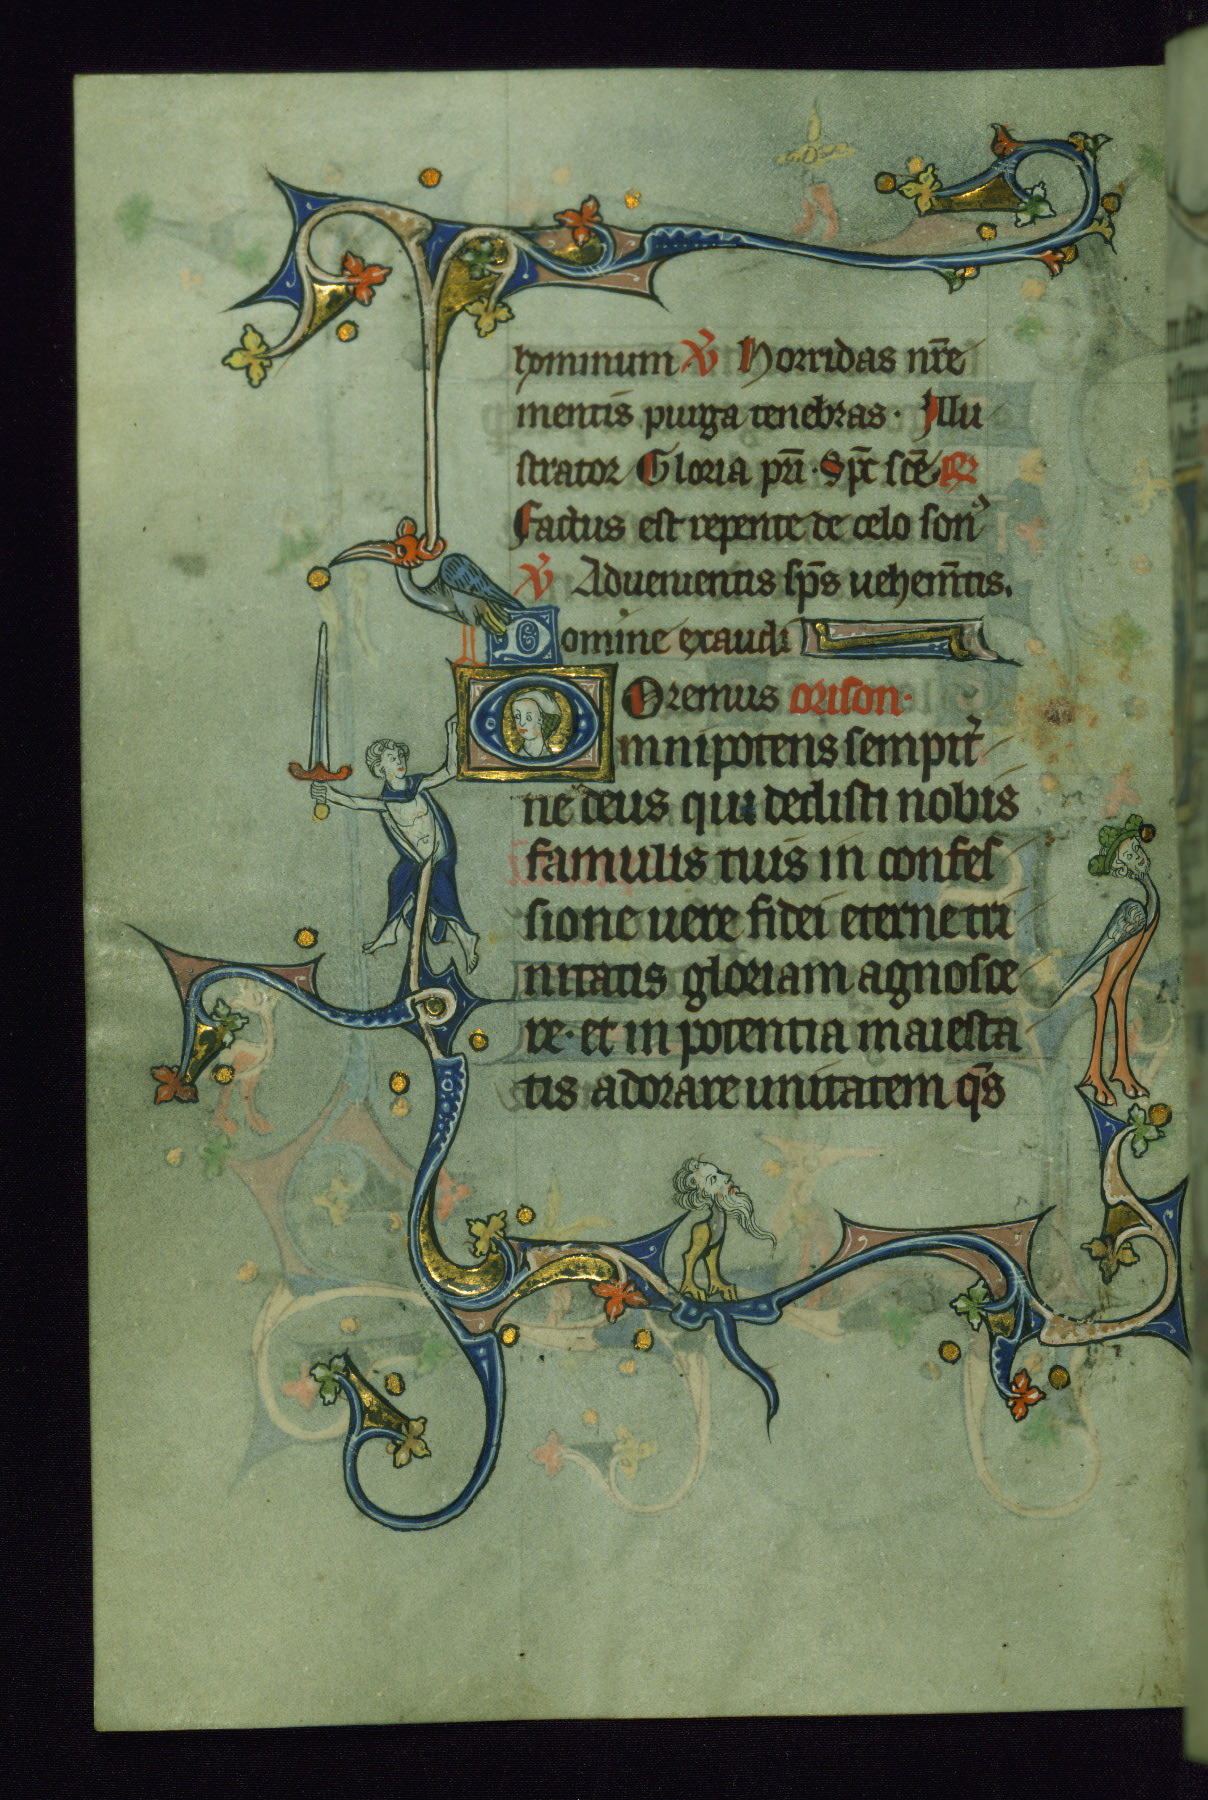 hominum ℣ Horridas nr̄e
mentis purga tenebras · Illu
strator Gloria pr̄i · Sp̄c scē ℟
Factus est repente de celo son᾿
℣ Aduenientis sp̄s uehem̄tis.
Domine exaudi
Oremus orison ·
Omnipotens sempit᾿
ne deus qui dedisti nobis
famulis tuis in confes
sione uere fidei eterne tri
nitatis gloriam agnosce
re · et in potentia maiesta
tis adorare unitatem q̄s